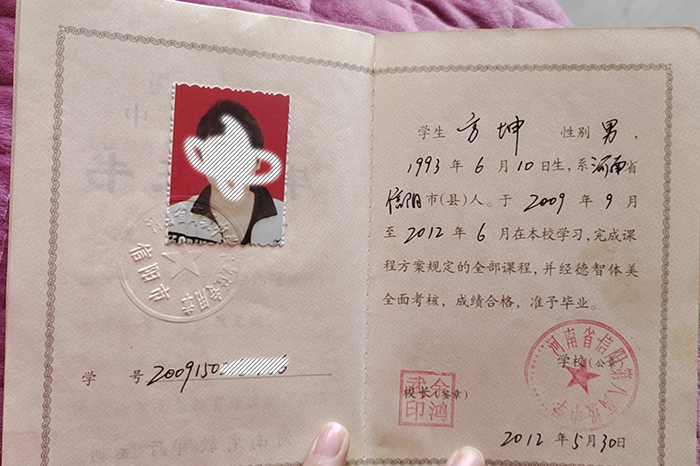 信阳市
学 号 2009150
学生 方坤 性别 男，
1993 年 6 月 10 日生，系 河南 省
信阳 市(县)人。于 2009 年 9 月
至 2012 年 6 月在本校学习，完成课
程方案规定的全部课程，并经德智体美
全面考核，成绩合格，准予毕业。
河南省信阳第八高级中学
学校(公章)
校长(签章)
余鸿武印
2012 年 5 月 30 日